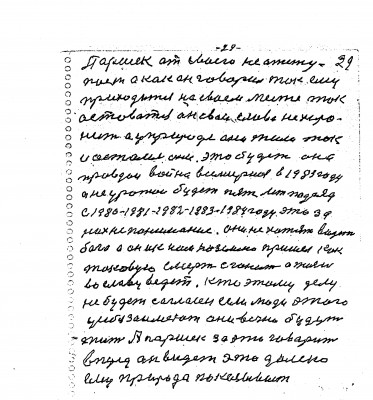 -29-
29
Паршек от своего не отсту-
поет а как он говорил так ему
приходится на своем месте так
астоватся он свои слова не хоро-
нит а у природе они жили так
и остался они. Это будет она
провдой война всемирная в 1989 году
а неурожаи будет пят лет подряд
с 1980-1981-1982-1983-1984 году. это за
них не понимание. они не хотят видет
бога а он и к нам на землю пришел как
токовую смерт сгонит а жизн
во славу ведет. Кто этому делу
не будет согласен если люди этого
умбу займетот они вечно будут
жит А паршек за это говорит
вперед он видет это далеко
ему природа показывает